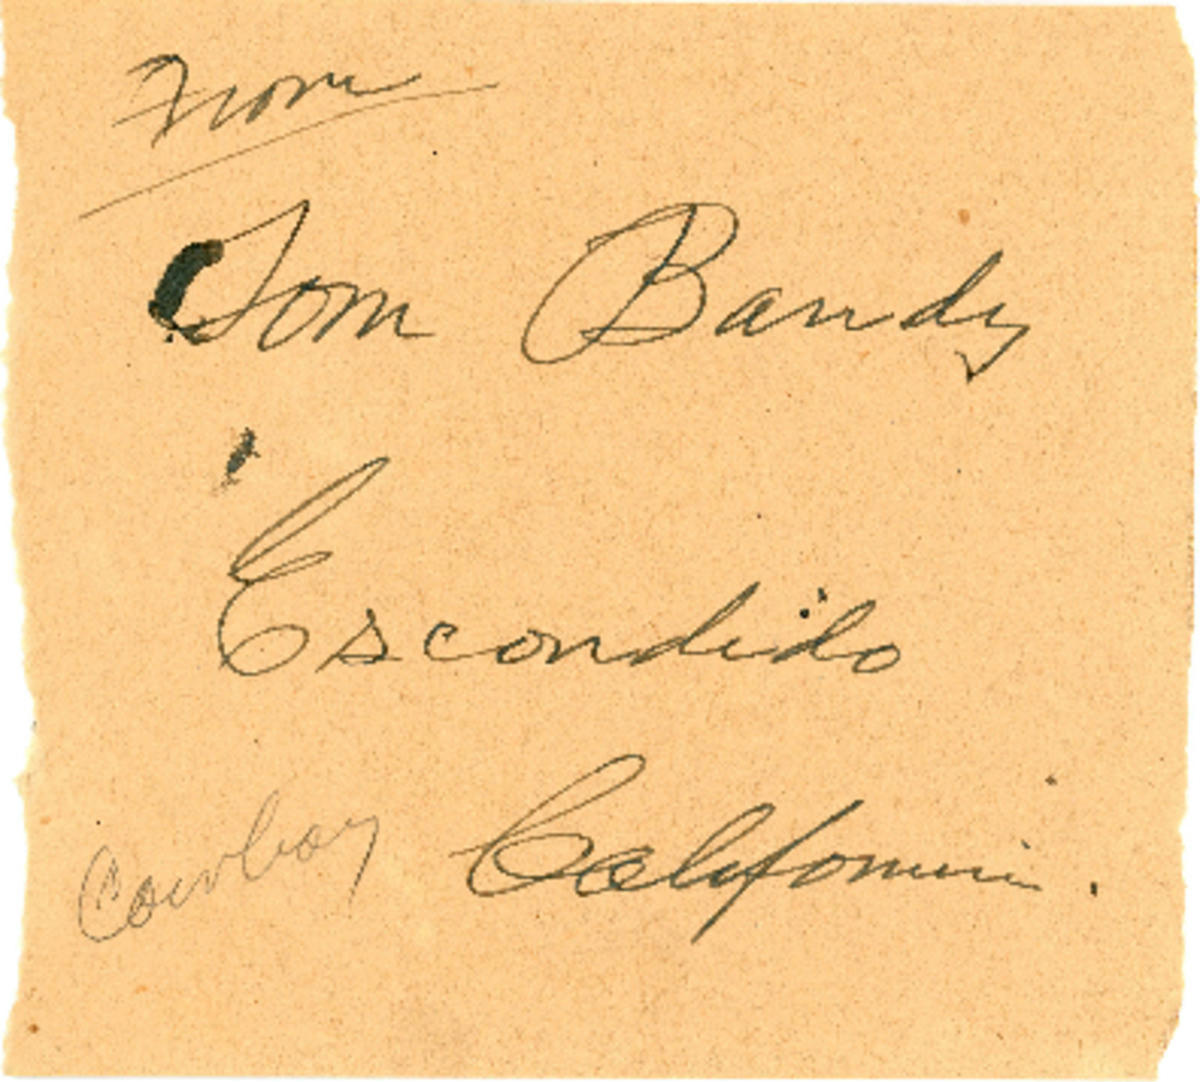 From
Tom Bandy
Escondido
Cowboy California.